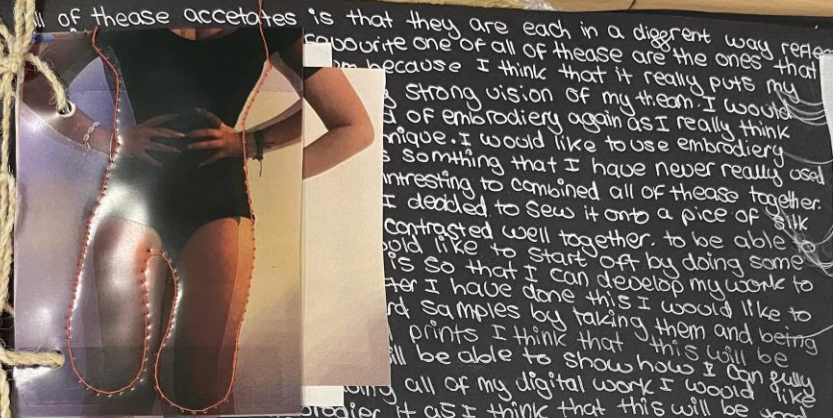 of thease accetates is that they are each in a different way
favourite one of all of thease are the ones that
because I think that it really puts my
strong vision of my theam. I would
of embrodiery again as I really think
I would like to use embrodiery
somthing that I have never really used
intresting to combined all of thease together.
I decided to sew it onto a pice of silk
contrasted well together. to be able to
would like to start off by doing some
is so that I can develop my work to
I have done this I would like to
samples by taking them and being
prints I think that this will be
will be able to show how I can fully
all of my digital work I would like
it as I think that this will look